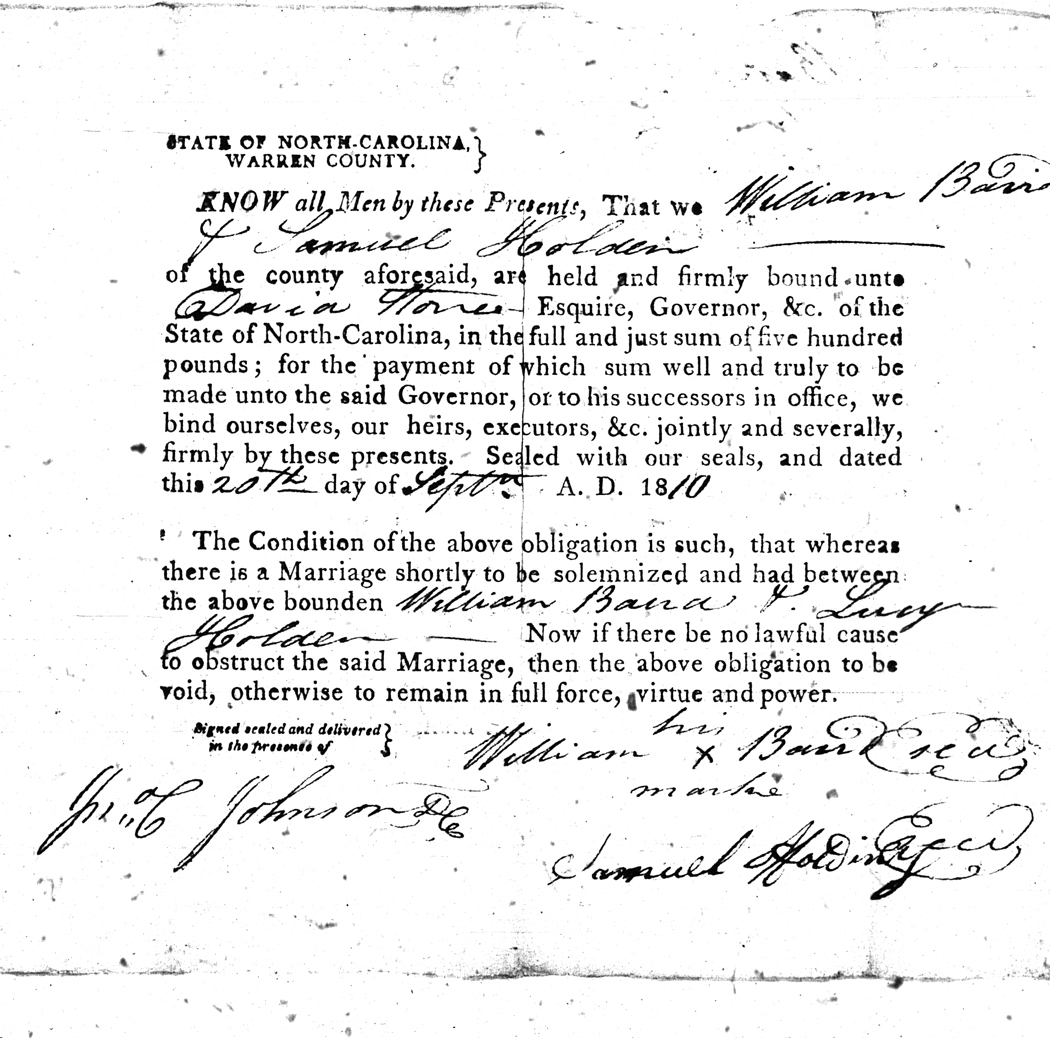 STATE OF NORTH-CAROLINA, }
WARREN COUNTY.
KNOW all Men by these Presents, That we William
& Samuel Holden
of the county aforesaid, are held and firmly bound unto
David Stone Esquire, Governor, &c. of the
State of North-Carolina, in the full and just sum of five hundred
pounds; for the payment of which sum well and truly to be
made unto the said Governor, or to his successors in office, we
bind ourselves, our heirs, executors, &c. jointly and severally,
firmly by these presents. Sealed with our seals, and dated
this 20th day of Septr. A. D. 1810
The Condition of the above obligation is such, that whereas
there is a Marriage shortly to be solemnized and had between
the above bounden William Baird & Lucy
Holden Now if there be no lawful cause
to obstruct the said Marriage, then the above obligation to be
void, otherwise to remain in full force, virtue and power.
Signed sealed and delivered }
in the presence of
his
William x Baird seal
marke
Jno. C Johnson DC
Samuel Holding seal